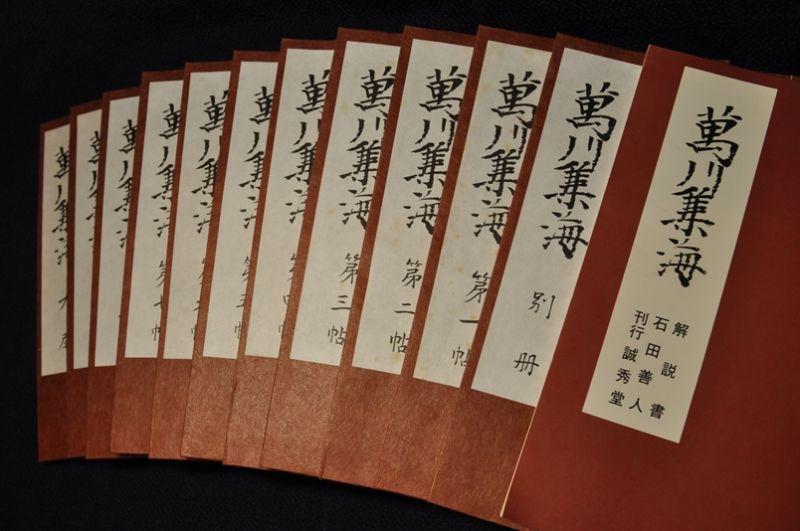 萬川集海
解説書
石田善人
刊行誠秀堂
萬川集海
別册
萬川集海
第一帖
萬川集海
第二帖
萬川集海
第三帖
萬川集海
第四帖
萬川集海
第五
萬川集海
萬川集海
第七
萬川集海
萬川集海
萬川集海